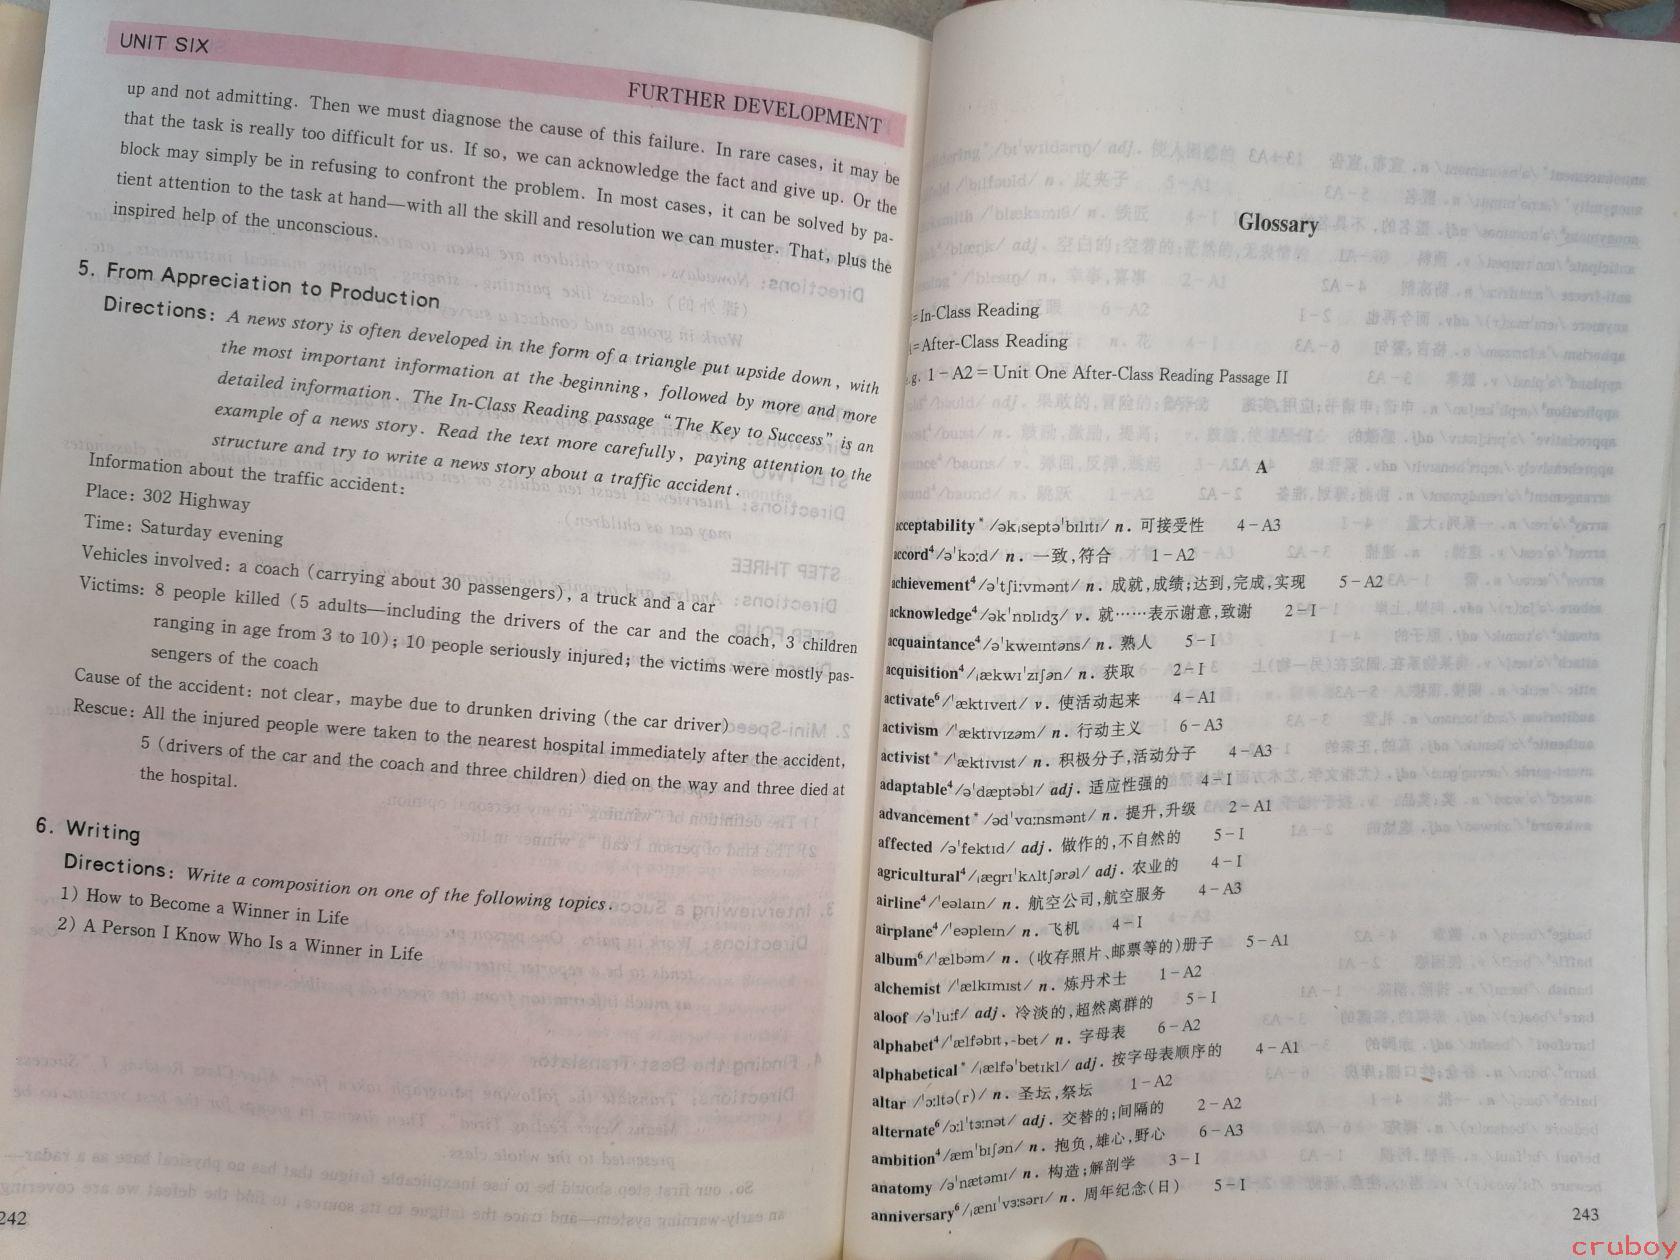 UNIT SIX
FURTHER DEVELOPMENT
up and not admitting. Then we must diagnose the cause of this failure. In rare cases, it may be
that the task is really too difficult for us. If so, we can acknowledge the fact and give up. Or the
block may simply be in refusing to confront the problem. In most cases, it can be solved by pa-
tient attention to the task at hand—with all the skill and resolution we can muster. That, plus the
inspired help of the unconscious.
5. From Appreciation to Production
Directions: A news story is often developed in the form of a triangle put upside down, with
the most important information at the beginning, followed by more and more
detailed information. The In-Class Reading passage "The Key to Success" is an
example of a news story. Read the text more carefully, paying attention to the
structure and try to write a news story about a traffic accident.
Information about the traffic accident:
Place: 302 Highway
Time: Saturday evening
Vehicles involved: a coach (carrying about 30 passengers), a truck and a car
Victims: 8 people killed (5 adults—including the drivers of the car and the coach, 3 children
ranging in age from 3 to 10); 10 people seriously injured; the victims were mostly pas-
sengers of the coach
Cause of the accident: not clear, maybe due to drunken driving (the car driver)
Rescue: All the injured people were taken to the nearest hospital immediately after the accident,
5 (drivers of the car and the coach and three children) died on the way and three died at
the hospital.
6. Writing
Directions: Write a composition on one of the following topics.
1) How to Become a Winner in Life
2) A Person I Know Who Is a Winner in Life
242
Glossary
=In-Class Reading
=After-Class Reading
.g. 1-A2=Unit One After-Class Reading Passage II
A
acceptability* /əkˌseptə'bılıtı/ n. 可接受性 4-A3
accord⁴/ə'kɔ:d/ n. 一致,符合 1-A2
achievement⁴/ə'tʃi:vmənt/ n. 成就,成绩;达到,完成,实现 5-A2
acknowledge⁴/ək'nɒlıdʒ/ v. 就……表示谢意,致谢 2-I
acquaintance⁴/ə'kweıntəns/ n. 熟人 5-I
acquisition⁴/ˌækwı'zıʃən/ n. 获取 2-I
activate⁶/'æktıveıt/ v. 使活动起来 4-A1
activism /'æktıvızəm/ n. 行动主义 6-A3
activist* /'æktıvıst/ n. 积极分子,活动分子 4-A3
adaptable⁴/ə'dæptəbl/ adj. 适应性强的 4-I
advancement* /əd'vɑ:nsmənt/ n. 提升,升级 2-A1
affected /ə'fektıd/ adj. 做作的,不自然的 5-I
agricultural⁴/ˌægrı'kʌltʃərəl/ adj. 农业的 4-I
airline⁴/'eəlaın/ n. 航空公司,航空服务 4-A3
airplane⁴/'eəpleın/ n. 飞机 4-I
album⁶/'ælbəm/ n. (收存照片、邮票等的)册子 5-A1
alchemist /'ælkımıst/ n. 炼丹术士 1-A2
aloof /ə'lu:f/ adj. 冷淡的,超然离群的 5-I
alphabet⁴/'ælfəbıt,-bet/ n. 字母表 6-A2
alphabetical* /ˌælfə'betıkl/ adj. 按字母表顺序的 4-A1
altar /'ɔ:ltə(r)/ n. 圣坛,祭坛 1-A2
alternate⁶/ɔ:l'tɜ:nət/ adj. 交替的;间隔的 2-A2
ambition⁴/æm'bıʃən/ n. 抱负,雄心,野心 6-A3
anatomy /ə'nætəmı/ n. 构造;解剖学 3-I
anniversary⁶/ˌænı'vɜ:sərı/ n. 周年纪念(日) 5-I
243
cruboy